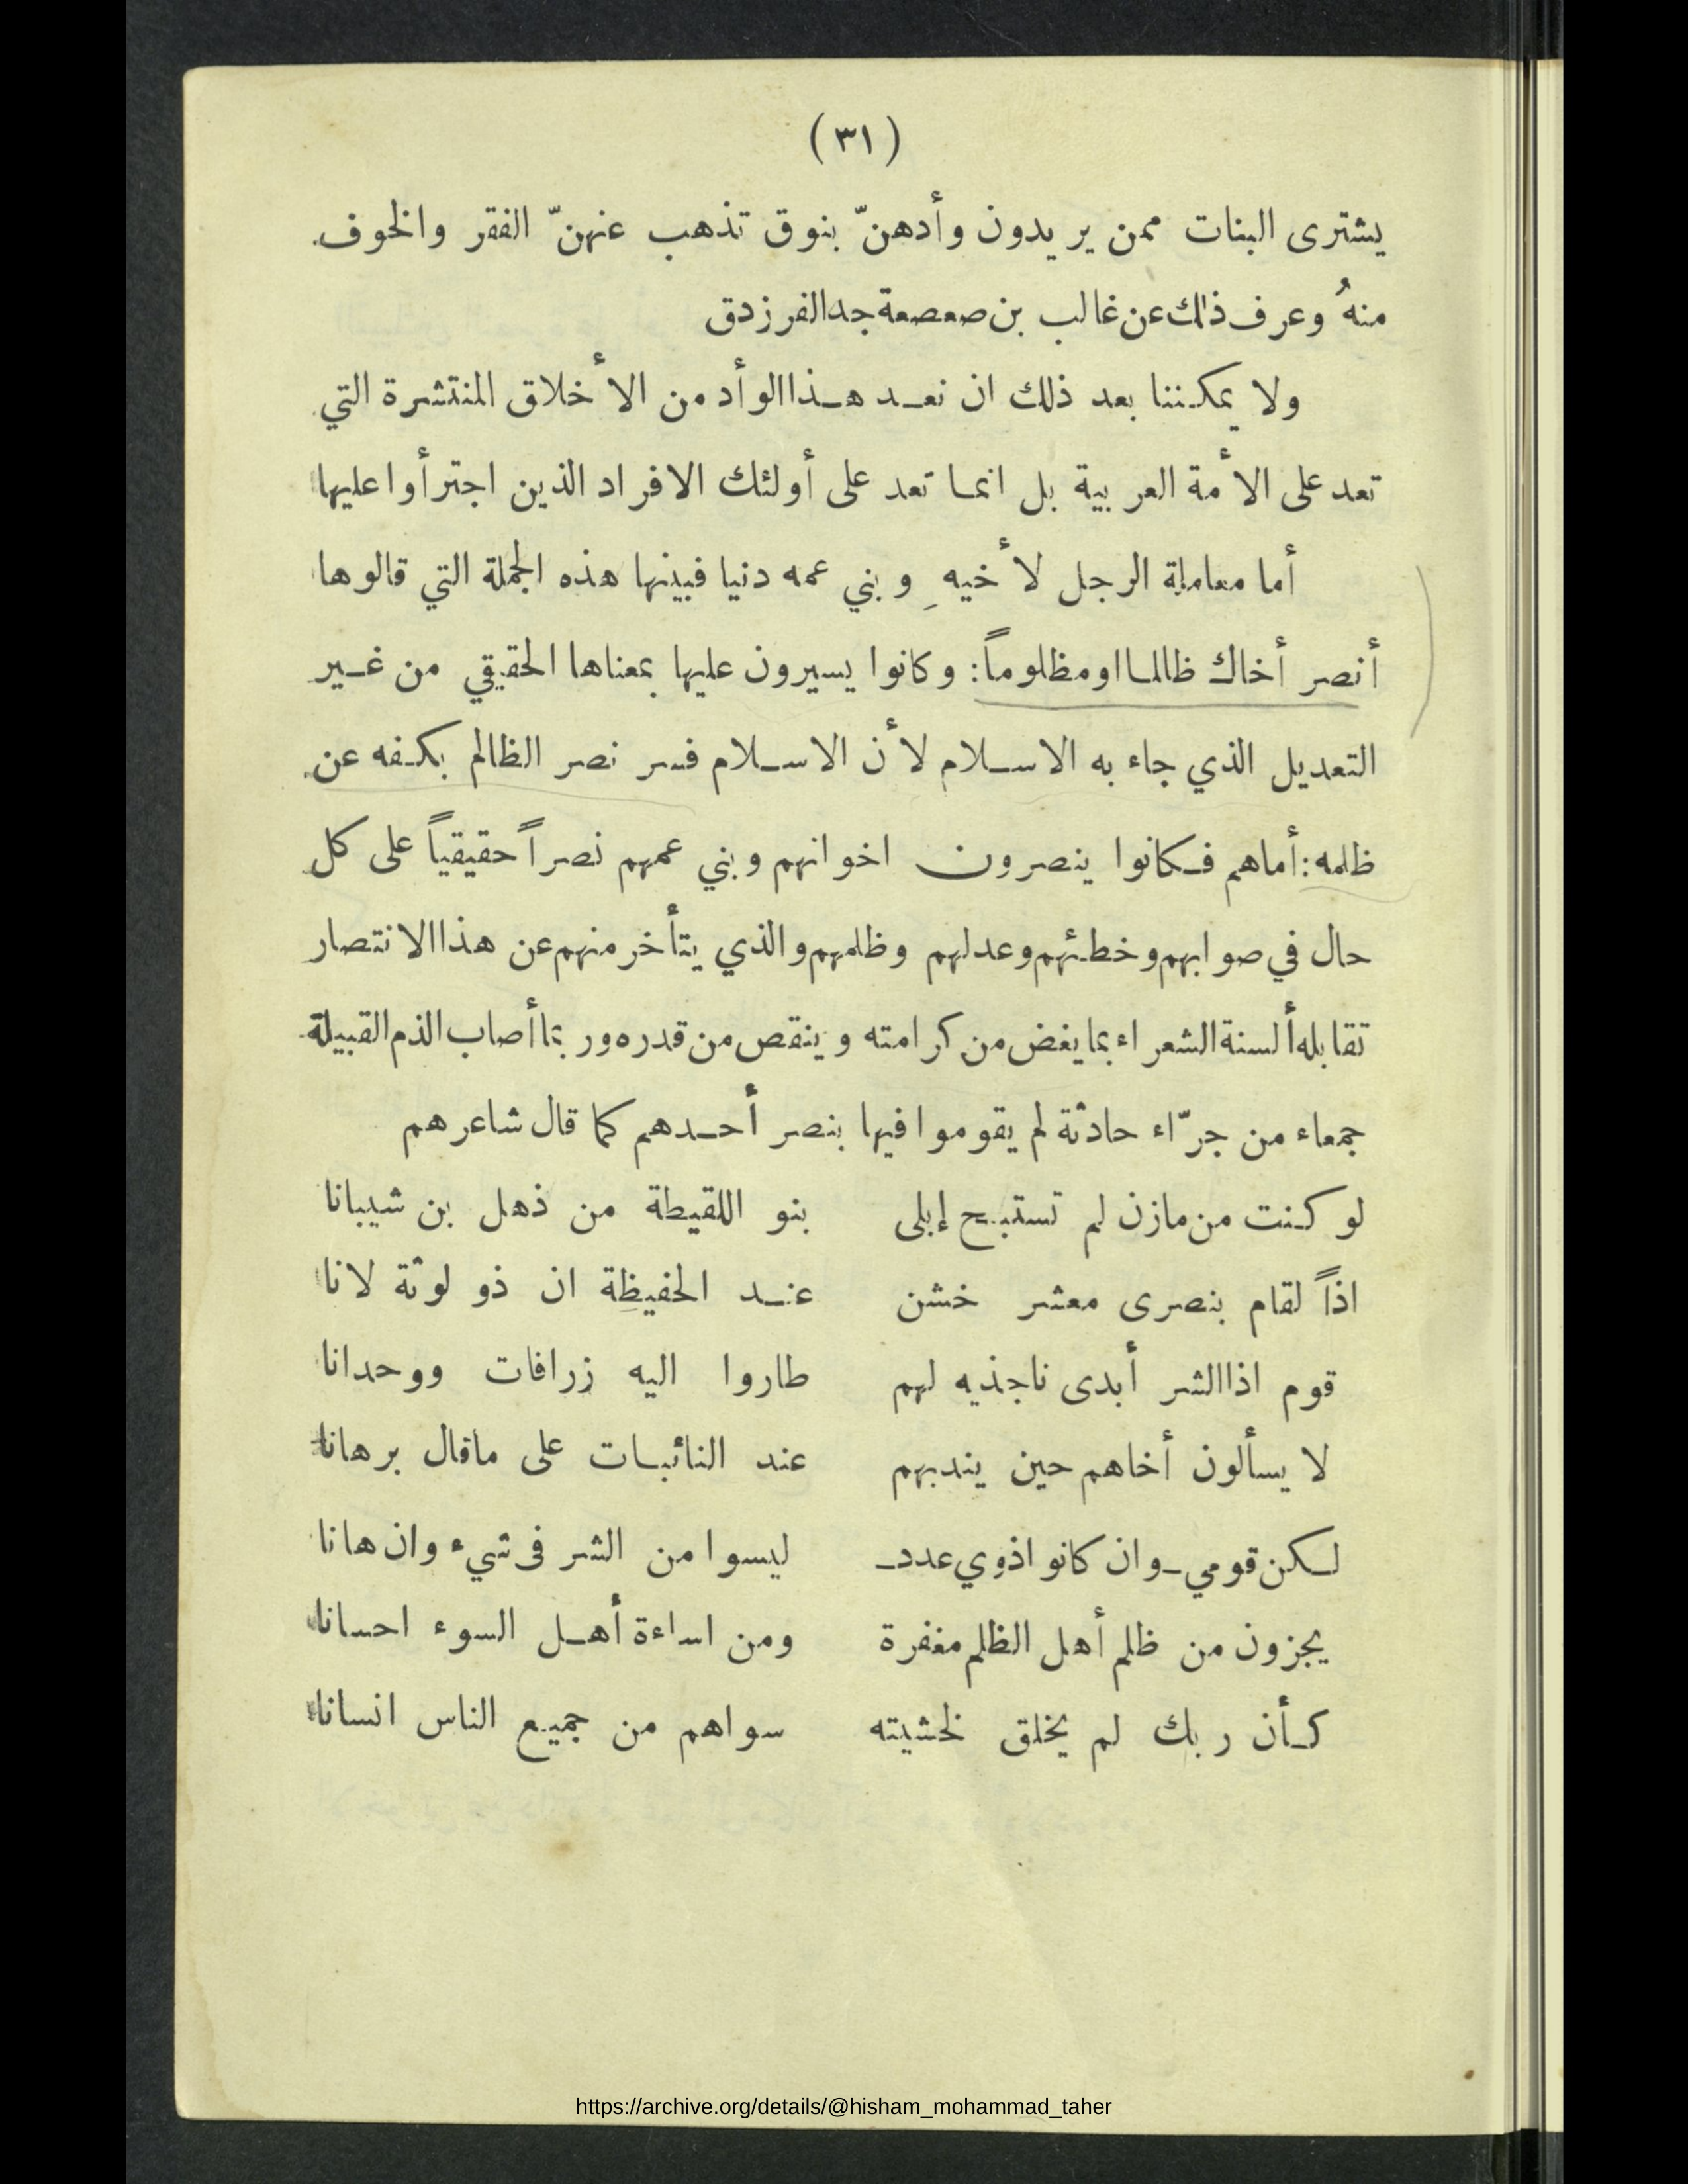 (٣١)
يشترى البنات ممن يريدون وأدهنّ بنوق تذهب عنهنّ الفقر والخوف
منهُ وعرف ذلك عن غالب بن صعصعة جد الفرزدق
ولا يمكننا بعد ذلك ان نعد هذا الوأد من الأخلاق المنتشرة التي
تعد على الأمة العربية بل انما تعد على أولئك الافراد الذين اجترأوا عليها
أما معاملة الرجل لأخيهِ وبني عمه دنيا فبينها هذه الجملة التي قالوها
أنصر أخاك ظالما او مظلوماً: وكانوا يسيرون عليها بمعناها الحقيقي من غير
التعديل الذي جاء به الاسلام لأن الاسلام فسر نصر الظالم بكفه عن
ظلمه: أما هم فكانوا ينصرون اخوانهم وبني عمهم نصراً حقيقياً على كل
حال في صوابهم وخطئهم وعدلهم وظلمهم والذي يتأخر منهم عن هذا الانتصار
تقابله ألسنة الشعراء بما يغض من كرامته وينقص من قدره وربما أصاب الذم القبيلة
جمعاء من جرّاء حادثة لم يقوموا فيها بنصر أحدهم كما قال شاعرهم
لو كنت من مازن لم تستبح إبلى بنو اللقيطة من ذهل بن شيبانا
اذاً لقام بنصرى معشر خشن عند الحفيظة ان ذو لوثة لانا
قوم اذا الشر أبدى ناجذيه لهم طاروا اليه زرافات ووحدانا
لا يسألون أخاهم حين يندبهم عند النائبات على ما قال برهانا
لكن قومي ـ وان كانوا ذوي عدد ـ ليسوا من الشر فى شيء وان هانا
يجزون من ظلم أهل الظلم مغفرة ومن اساءة أهل السوء احسانا
كأن ربك لم يخلق لخشيته سواهم من جميع الناس انسانا
https://archive.org/details/@hisham_mohammad_taher